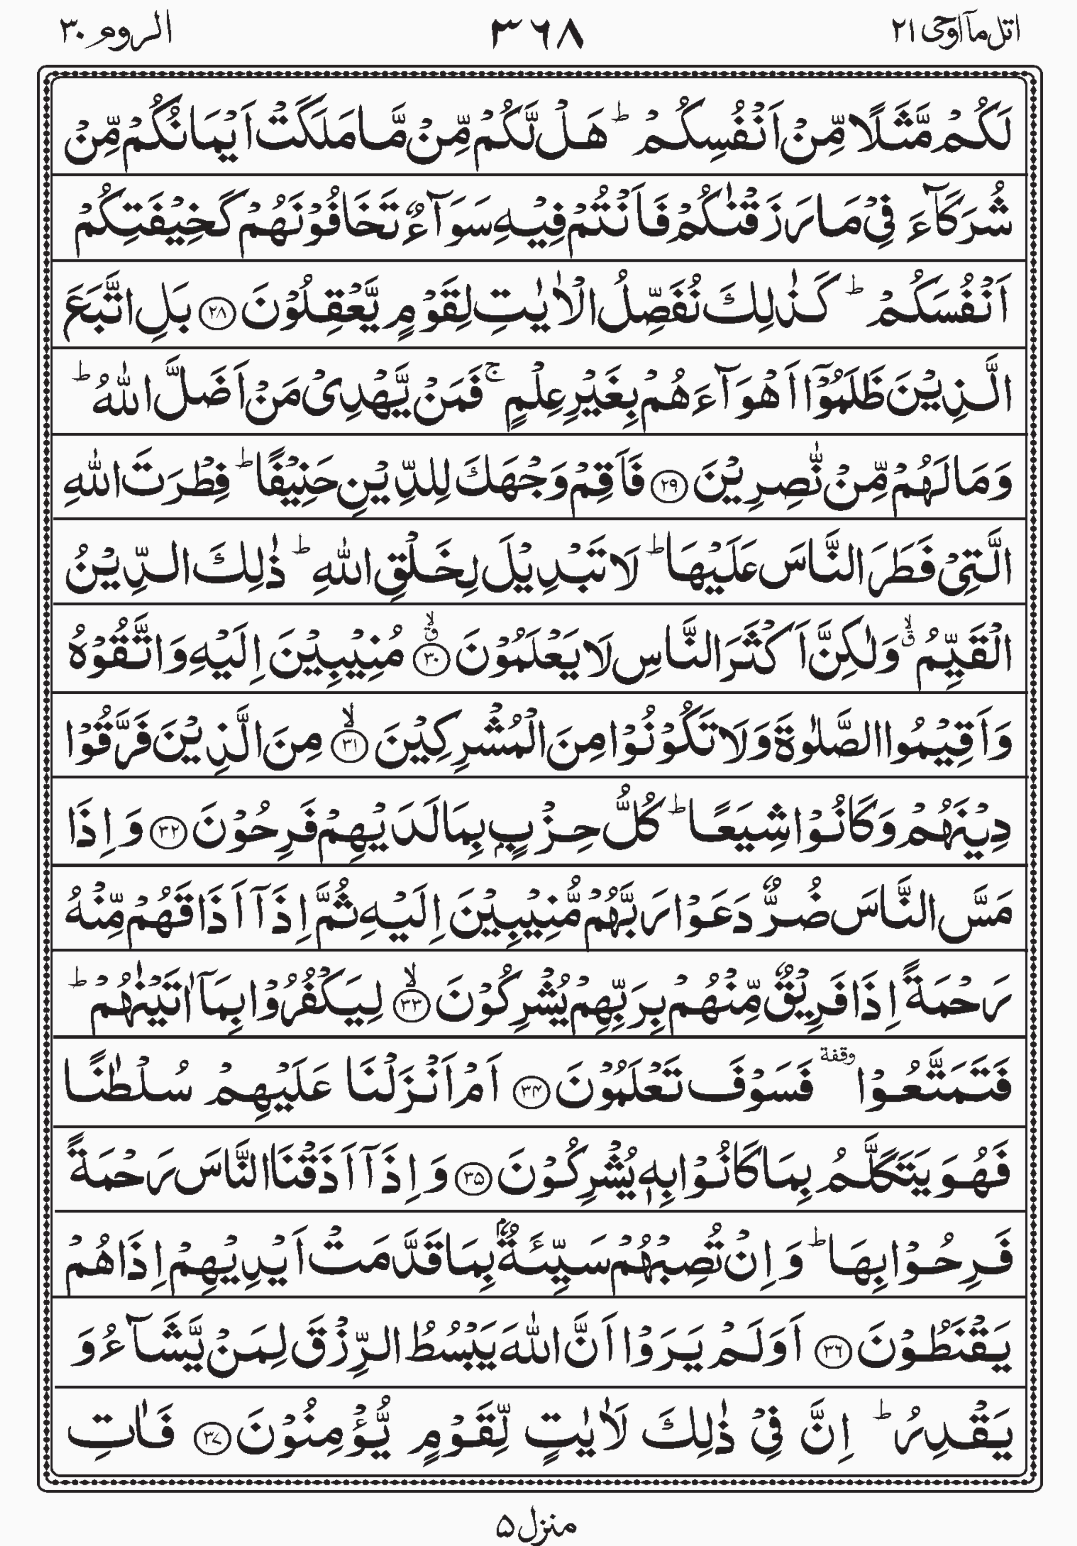 اتل مآ اوحی ۲۱
۳۶۸
الروم ۳۰
لَكُمْ مَّثَلًا مِّنْ اَنْفُسِكُمْ ؕ هَلْ لَّكُمْ مِّنْ مَّا مَلَكَتْ اَيْمَانُكُمْ مِّنْ
شُرَكَآءَ فِيْ مَا رَزَقْنٰكُمْ فَاَنْتُمْ فِيْهِ سَوَآءٌ تَخَافُوْنَهُمْ كَخِيْفَتِكُمْ
اَنْفُسَكُمْ ؕ كَذٰلِكَ نُفَصِّلُ الْاٰيٰتِ لِقَوْمٍ يَّعْقِلُوْنَ ۲۸ بَلِ اتَّبَعَ
الَّذِيْنَ ظَلَمُوْۤا اَهْوَآءَهُمْ بِغَيْرِ عِلْمٍ ۚ فَمَنْ يَّهْدِيْ مَنْ اَضَلَّ اللّٰهُ ؕ
وَمَا لَهُمْ مِّنْ نّٰصِرِيْنَ ۲۹ فَاَقِمْ وَجْهَكَ لِلدِّيْنِ حَنِيْفًا ؕ فِطْرَتَ اللّٰهِ
الَّتِيْ فَطَرَ النَّاسَ عَلَيْهَا ؕ لَا تَبْدِيْلَ لِخَلْقِ اللّٰهِ ؕ ذٰلِكَ الدِّيْنُ
الْقَيِّمُ ۙۗ وَلٰكِنَّ اَكْثَرَ النَّاسِ لَا يَعْلَمُوْنَ ۳۰ۗۙ مُنِيْبِيْنَ اِلَيْهِ وَاتَّقُوْهُ
وَاَقِيْمُوا الصَّلٰوةَ وَلَا تَكُوْنُوْا مِنَ الْمُشْرِكِيْنَ ۳۱ۙ مِنَ الَّذِيْنَ فَرَّقُوْا
دِيْنَهُمْ وَكَانُوْا شِيَعًا ؕ كُلُّ حِزْبٍۭ بِمَا لَدَيْهِمْ فَرِحُوْنَ ۳۲ وَاِذَا
مَسَّ النَّاسَ ضُرٌّ دَعَوْا رَبَّهُمْ مُّنِيْبِيْنَ اِلَيْهِ ثُمَّ اِذَاۤ اَذَاقَهُمْ مِّنْهُ
رَحْمَةً اِذَا فَرِيْقٌ مِّنْهُمْ بِرَبِّهِمْ يُشْرِكُوْنَ ۳۳ۙ لِيَكْفُرُوْا بِمَاۤ اٰتَيْنٰهُمْ ؕ
فَتَمَتَّعُوْا وقفة فَسَوْفَ تَعْلَمُوْنَ ۳۴ اَمْ اَنْزَلْنَا عَلَيْهِمْ سُلْطٰنًا
فَهُوَ يَتَكَلَّمُ بِمَا كَانُوْا بِهٖ يُشْرِكُوْنَ ۳۵ وَاِذَاۤ اَذَقْنَا النَّاسَ رَحْمَةً
فَرِحُوْا بِهَا ؕ وَاِنْ تُصِبْهُمْ سَيِّئَةٌۢ بِمَا قَدَّمَتْ اَيْدِيْهِمْ اِذَا هُمْ
يَقْنَطُوْنَ ۳۶ اَوَلَمْ يَرَوْا اَنَّ اللّٰهَ يَبْسُطُ الرِّزْقَ لِمَنْ يَّشَآءُ وَ
يَقْدِرُ ؕ اِنَّ فِيْ ذٰلِكَ لَاٰيٰتٍ لِّقَوْمٍ يُّؤْمِنُوْنَ ۳۷ فَاٰتِ
منزل ۵